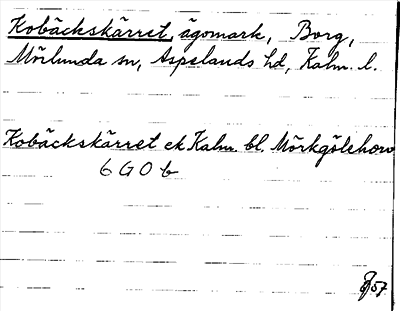 Kobäckskärret, ägomark, Borg,
Mörlunda sn, Aspelands hd, Kalm. l.
Kobäckskärret ek Kalm. bl. Mörkgölehorv
6 G 0 b
57